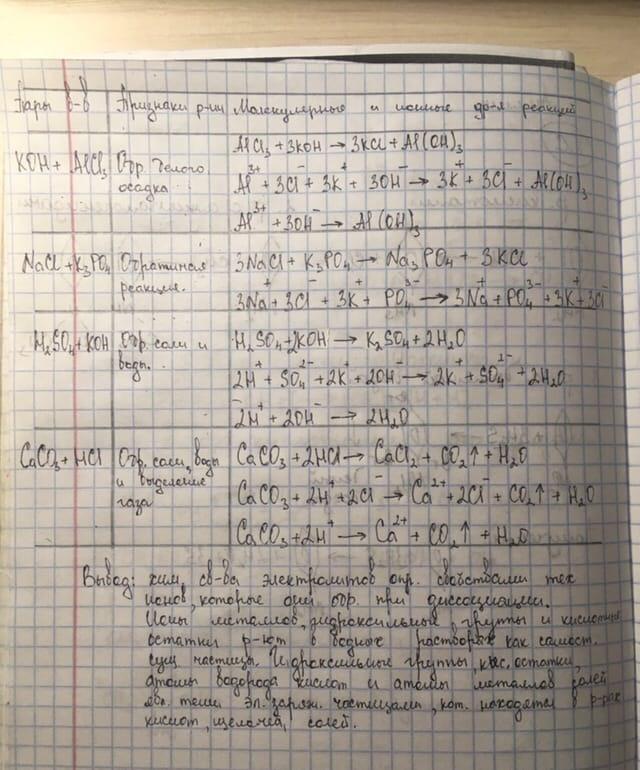 Пары в-в Признаки р-ии Молекулярные и ионные ур-я реакций
KOH + AlCl₃ Обр. белого осадка
AlCl₃ + 3KOH → 3KCl + Al(OH)₃
Al³⁺ + 3Cl⁻ + 3K⁺ + 3OH⁻ → 3K⁺ + 3Cl⁻ + Al(OH)₃
Al³⁺ + 3OH⁻ → Al(OH)₃
NaCl + K₃PO₄ Обратимая реакция.
3NaCl + K₃PO₄ → Na₃PO₄ + 3KCl
3Na⁺ + 3Cl⁻ + 3K⁺ + PO₄³⁻ → 3Na⁺ + PO₄³⁻ + 3K⁺ + 3Cl⁻
H₂SO₄ + KOH Обр. соли и воды.
H₂SO₄ + 2KOH → K₂SO₄ + 2H₂O
2H⁺ + SO₄²⁻ + 2K⁺ + 2OH⁻ → 2K⁺ + SO₄²⁻ + 2H₂O
2H⁺ + 2OH⁻ → 2H₂O
CaCO₃ + HCl Обр. соли, воды и выделение газа
CaCO₃ + 2HCl → CaCl₂ + CO₂↑ + H₂O
CaCO₃ + 2H⁺ + 2Cl⁻ → Ca²⁺ + 2Cl⁻ + CO₂↑ + H₂O
CaCO₃ + 2H⁺ → Ca²⁺ + CO₂↑ + H₂O
Вывод: хим. св-ва электролитов опр. свойствами тех
ионов, которые они обр. при диссоциации.
Ионы металлов, гидроксильные группы и кислотные
остатки р-ют в водных растворах как самост.
сущ. частицы. Гидроксильные группы, кис. остатки,
атомы водорода кислот и атомы металлов солей
явл. теми эл. заряж. частицами, кот. находятся в р-рах
кислот, щелочей, солей.